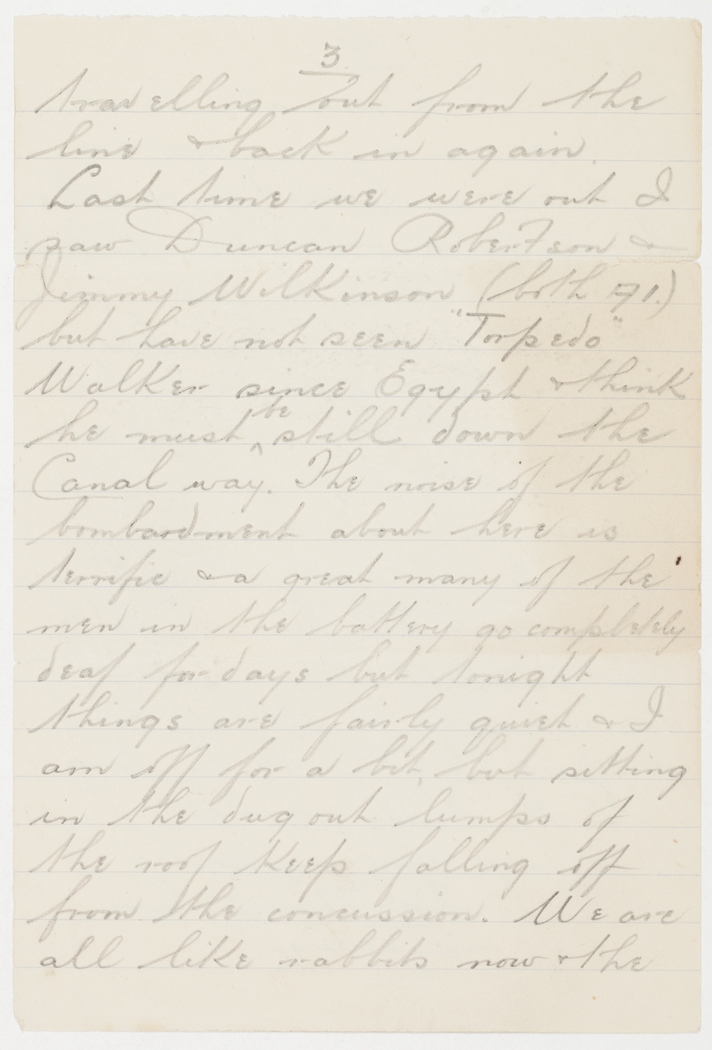 3
travelling out from the
line & back in again.
Last time we were out I
saw Duncan Robertson &
Jimmy Wilkinson (both 171.)
but have not seen "Torpedo"
Walker since Egypt & think
he must be still down the
Canal way. The noise of the
bombardment about here is
terrific & a great many of the
men in the battery go completely
deaf for days but tonight
things are fairly quiet & I
am off for a bit, but sitting
in the dug out lumps of
the roof keep falling off
from the concussion. We are
all like rabbits now & the